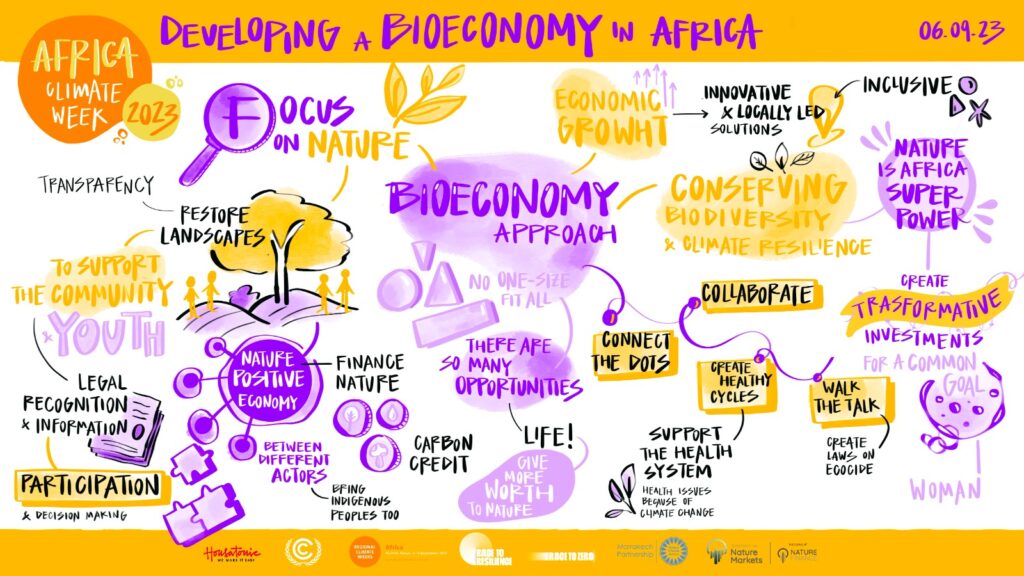 AFRICA
CLIMATE
WEEK
2023
DEVELOPING A BIOECONOMY IN AFRICA
06.09.23
FOCUS
ON NATURE
TRANSPARENCY
RESTORE
LANDSCAPES
TO SUPPORT
THE COMMUNITY
& YOUTH
LEGAL
RECOGNITION
& INFORMATION
PARTICIPATION
& DECISION MAKING
NATURE
POSITIVE
ECONOMY
FINANCE
NATURE
CARBON
CREDIT
BETWEEN
DIFFERENT
ACTORS
BRING
INDIGENOUS
PEOPLES TOO
BIOECONOMY
APPROACH
NO ONE-SIZE
FIT ALL
THERE ARE
SO MANY
OPPORTUNITIES
LIFE!
GIVE
MORE
WORTH
TO NATURE
ECONOMIC
GROWHT
INNOVATIVE
& LOCALLY LED
SOLUTIONS
INCLUSIVE
CONSERVING
BIODIVERSITY
& CLIMATE RESILIENCE
NATURE
IS AFRICA
SUPER
POWER
COLLABORATE
CONNECT
THE DOTS
CREATE
HEALTHY
CYCLES
WALK
THE TALK
SUPPORT
THE HEALTH
SYSTEM
HEALTH ISSUES
BECAUSE OF
CLIMATE CHANGE
CREATE
LAWS ON
ECOCIDE
CREATE
TRASFORMATIVE
INVESTMENTS
FOR A COMMON
GOAL
WOMAN
Housatonic
WE MAKE IT EASY
REGIONAL
CLIMATE
WEEKS
Africa
RACE TO
RESILIENCE
RACE TO ZERO
Marrakech
Partnership
Nature
Markets
NATURE